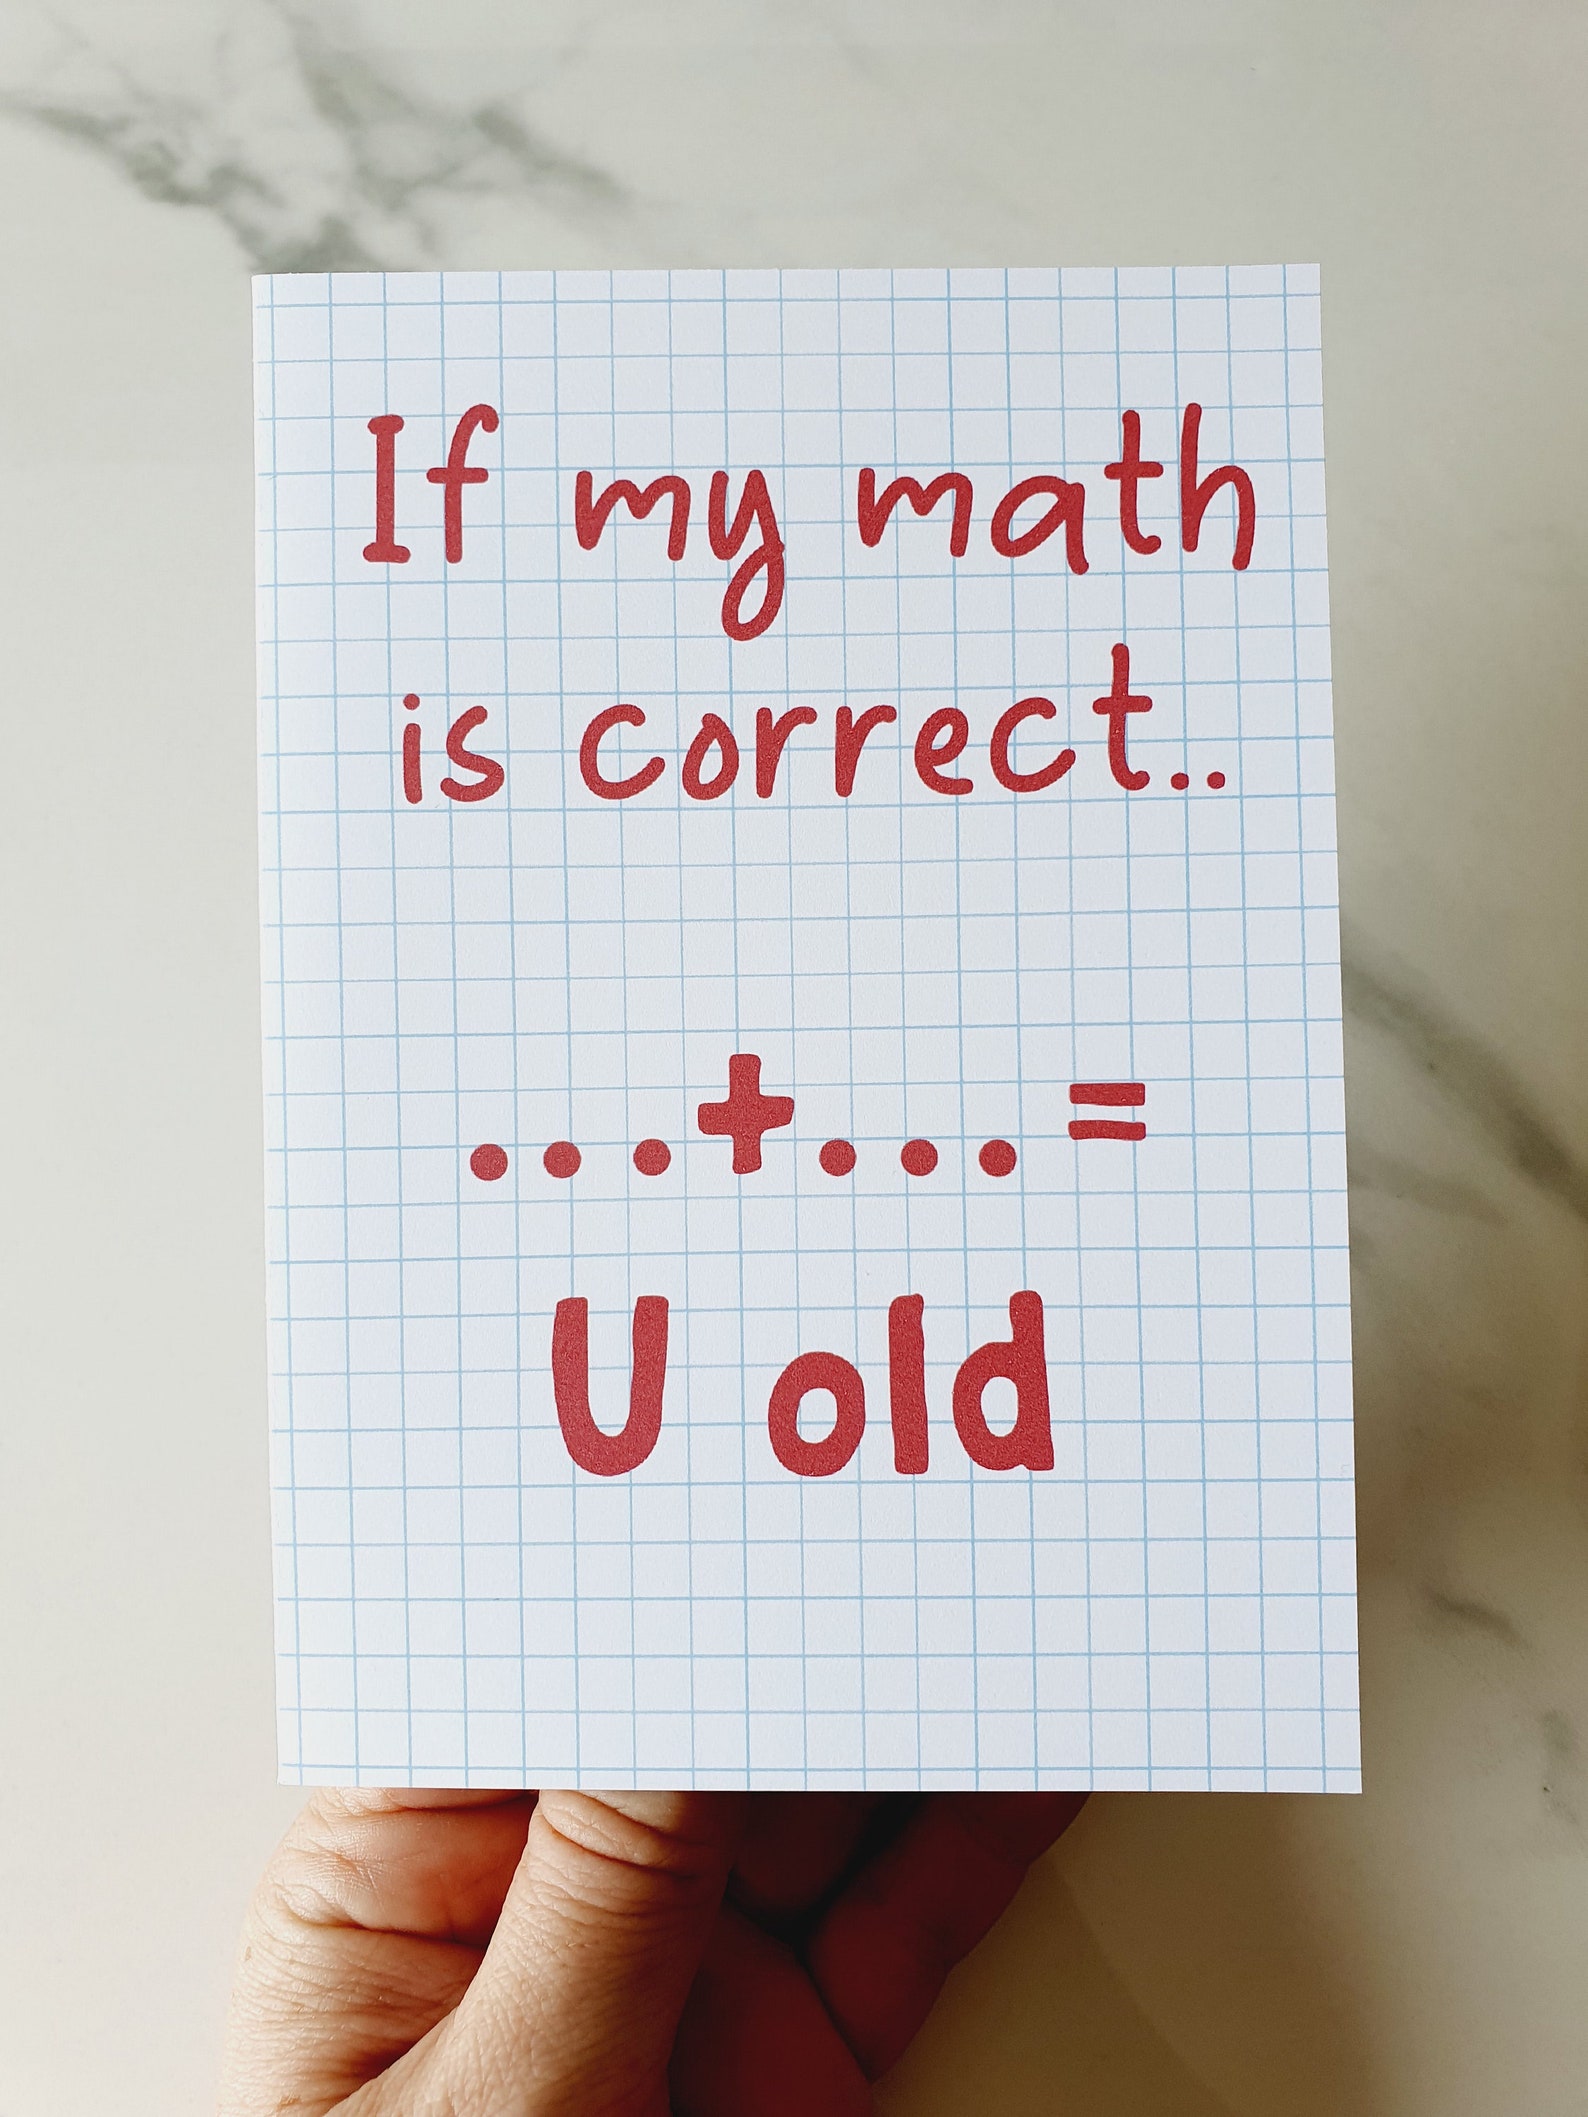 If my math
is correct..
...+... =
U old